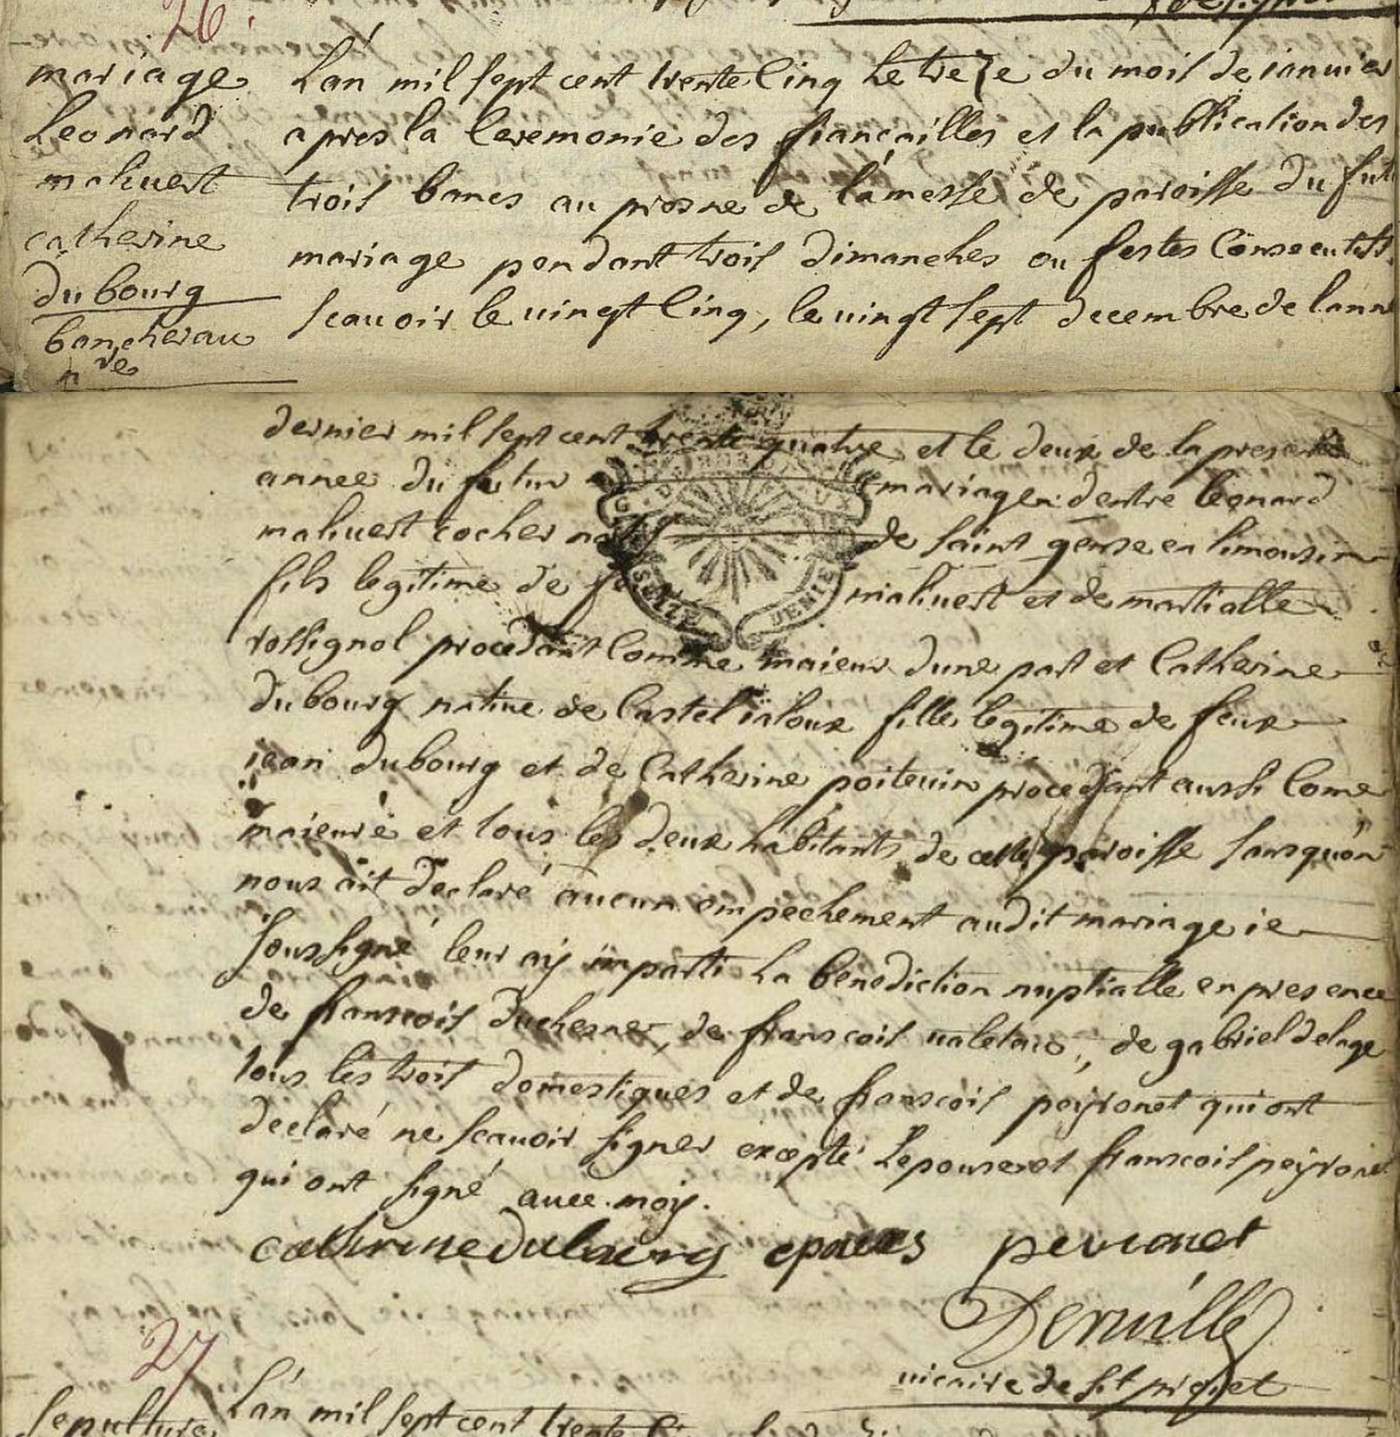 26.
mariage
Leonard
maliuert
catherine
dubourg
bancherau
Lan mil sept cent trente cinq le treze du mois de ianuier
apres la ceremonie des fiancailles et la publication des
trois bancs au prosne de la messe de paroisse du futur
mariage pendant trois dimanches ou festes consecutifs
scauoir le uingt cinq, le uingt sept decembre de lanne
dernier mil sept cent trente quatre et le deux de la presente
annee du futur mariage dentre leonard
maliuert cocher natif de saint gense en limousin
fils legitime de feu maliuert et de martialle
rossignol procedant comme maieur dune part et catherine
dubourg natiue de Castel ialoux fille legitime de feux
iean dubourg et de catherine poiteuin procedant aussi come
maieure et tous les deux habitants de cette paroisse sans quon
nous ait declaré aucun empechement audit mariage ie
soussigné leur ay imparti la benediction nuptialle en presence
de francois duchesne, de francois ualetau, de gabriel delage
tous les trois domestiques et de francois peyronet qui ont
declaré ne scauoir signer excepté lepouse et francois peyronet
qui ont signé auec moy.
catherine dubourg epouse peuronet
Deruillé
uicaire de st projet
27
Sepulture
Lan mil sept cent trente